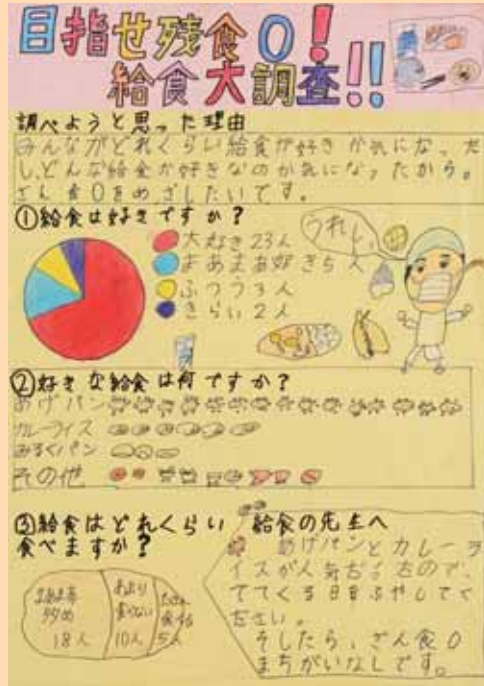 目指せ残食0!
給食大調査!!
調べようと思った理由
みんながどれくらい給食が好きか気になった
し、どんな給食が好きなのか気になったから。
ざん食0をめざしたいです。
①給食は好きですか?
大好き23人
まあまあ好き5人
ふつう3人
きらい2人
うれしい
②好きな給食は何ですか?
あげパン
カレーライス
みるくパン
その他
③給食はどれくらい
食べますか?
18人
あまり
食べない
10人
5人
給食の先生へ
あげパンとカレーラ
イスが人気だったので、
でてくる日をふやしてく
ださい。
そしたら、ざん食0
まちがいなしです。